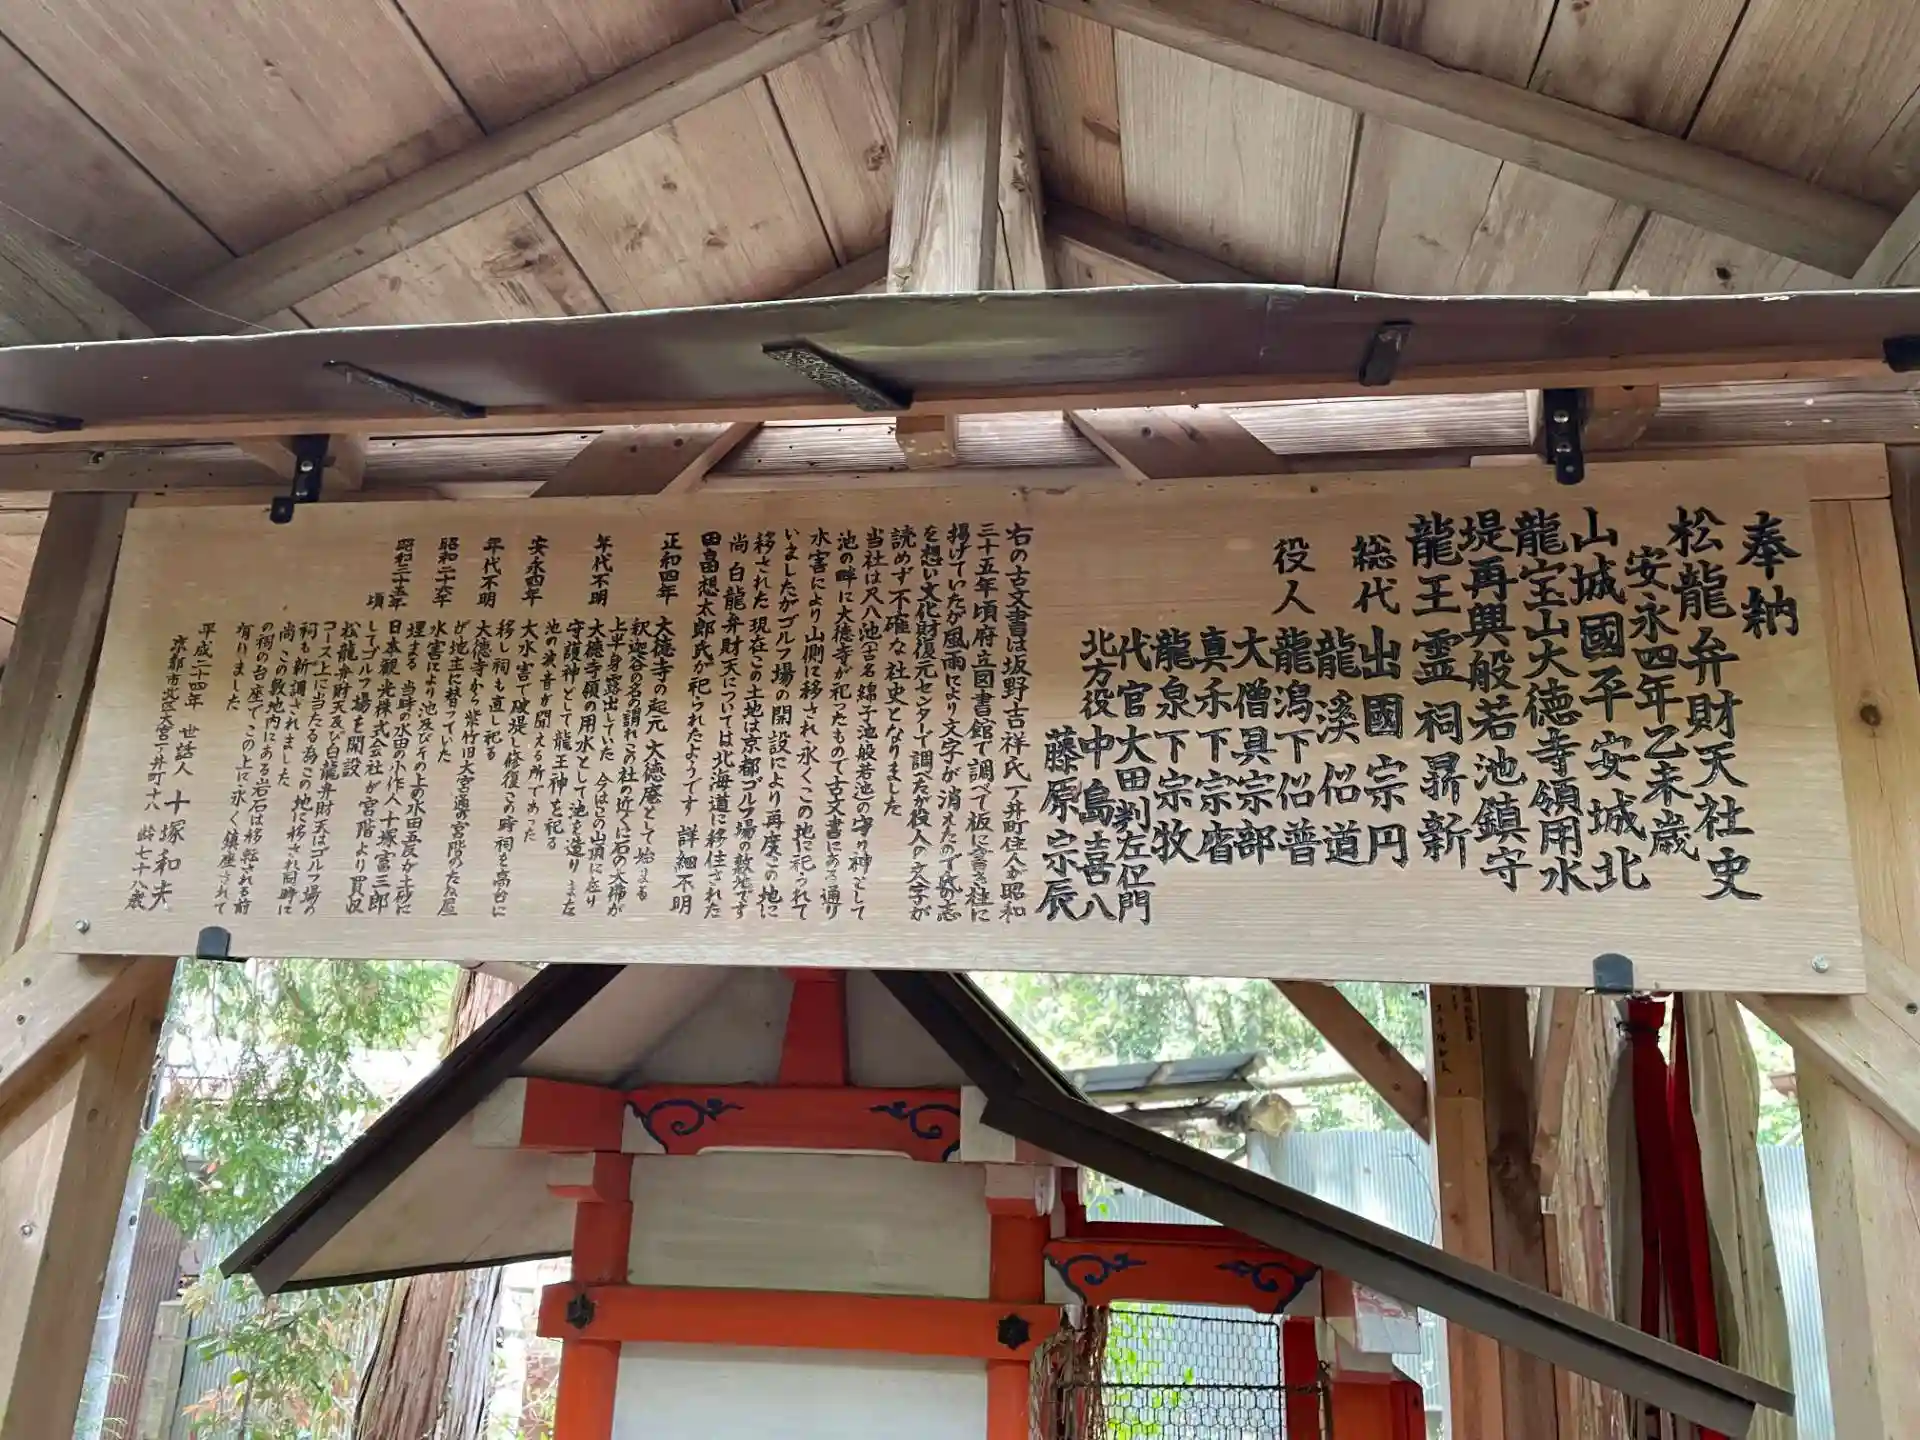 奉納
松龍弁財天社史
安永四年乙未歳
山城國平安城北
龍宝山大徳寺領用水
堤再興般若池鎮守
龍王霊祠昇新
総代 出國宗円
龍溪侶道
役人 龍潟下侶普
大僧具宗部
真禾下宗
龍泉下宗牧
代官大田判左ヱ門
北方役中島士喜八
藤原宗辰
右の古文書は坂野吉祥氏一ノ井町住人が昭和
三十五年頃府立図書館で調べて板に書き社に
揚げていたが風雨により文字が消えたので氏の志
を想い文化財復元センターで調べたが役人の文字が
読めず不確な社史となりました
当社は尺八池(古名綿子池般若池)の守り神として
池の畔に大徳寺が祀ったもので古文書にある通り
水害により山側に移され永くこの地に祀られて
いましたがゴルフ場の開設により再度この地に
移された 現在この土地は京都ゴルフ場の敷地です
尚 白龍弁財天については北海道に移住された
田畠想太郎氏が祀られたようです 詳細不明
正和四年 大徳寺の起元 大徳庵として始まる
釈迦谷の名の謂れこの社の近くに石の大佛が
上半身露出していた 今はこの山頂に在り
年代不明 大徳寺領の用水として池を造りまた
守護神として龍王神を祀る
池の波音が聞える所であった
安永四年 大水害で破堤し修復この時祠を高台に
移し祠も直し祀る
年代不明 大徳寺から紫竹旧大宮通の宮階のたね屋
が地主に替っていた
昭和二十六年 水害により池及びその上の水田五反が土砂に
埋まる 当時の水田の小作人 十塚富三郎
昭和三十五年頃 日本観光株式会社が宮階より買収
してゴルフ場を開設
松龍弁財天及び白龍弁財天はゴルフ場の
コース上に当たる為この地に移され同時に
祠も新調されました
尚 この敷地内にある岩石は移転される前
の祠の台座でこの上に永く鎮座されて
有りました
平成二十四年 世話人 十塚和夫
京都市北区大宮一ノ井町十八 齢七十八歳